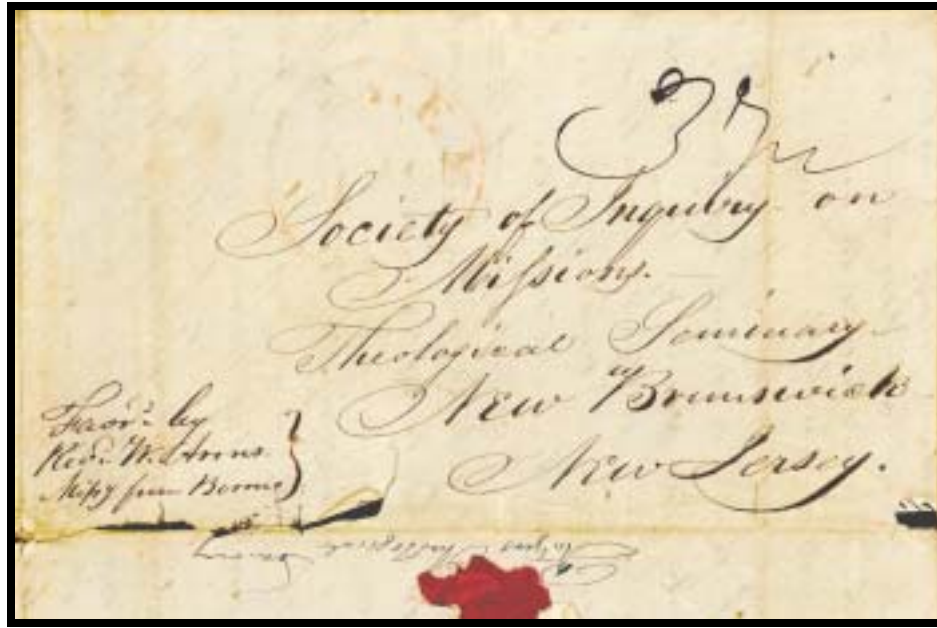 37½
Society of Inquiry on
Missions.
Theological Seminary
New Brunswick
New Jersey.
Favor.d by
Revd. W. Arms
Missy from Borneo
Theological